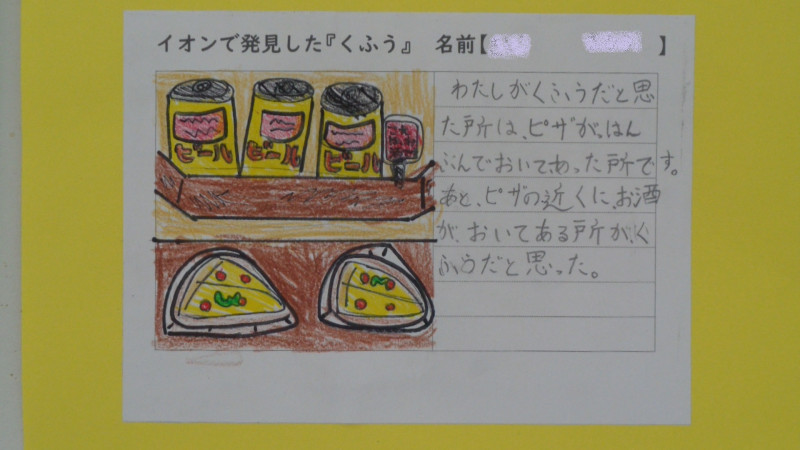 イオンで発見した『くふう』 名前【 】
ビール ビール ビール
わたしがくふうだと思
た所は、ピザが、はん
ぶんでおいてあった所です。
あと、ピザの近くに、お酒
が、おいてある所が、く
ふうだと思った。